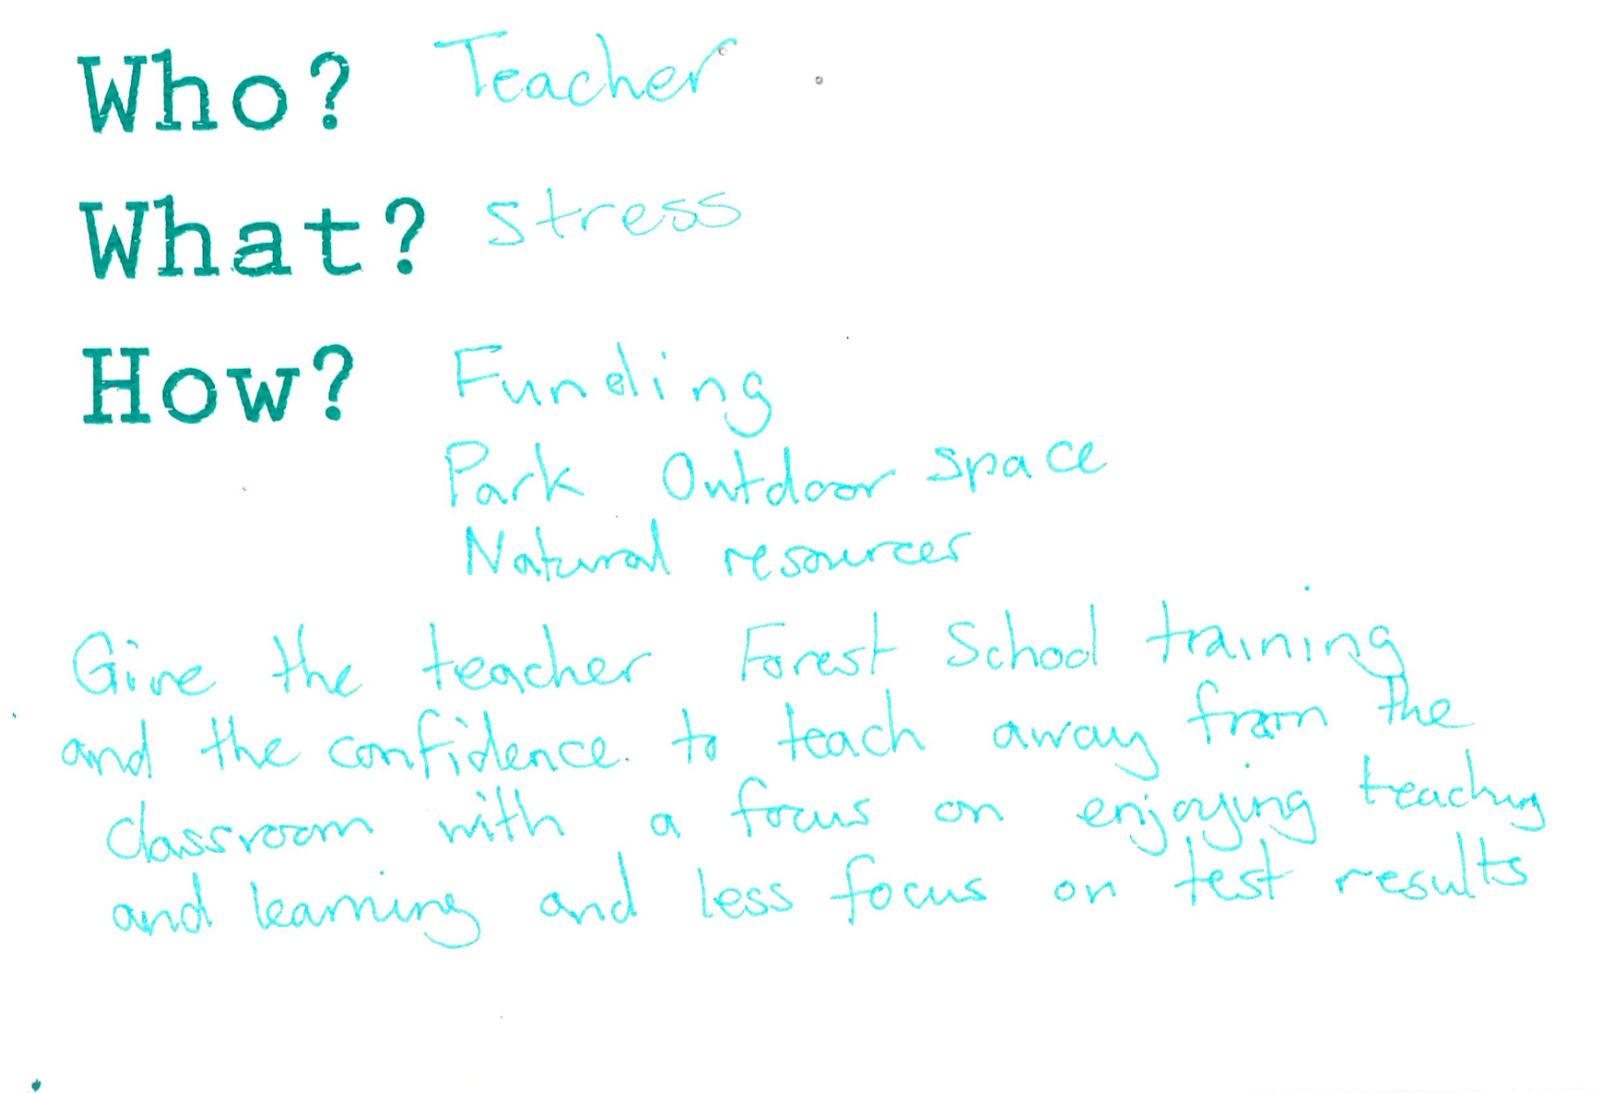 Who? Teacher
What? Stress
How? Funding
Park Outdoor space
Natural resources
Give the teacher Forest School training
and the confidence to teach away from the
classroom with a focus on enjoying teaching
and learning and less focus on test results